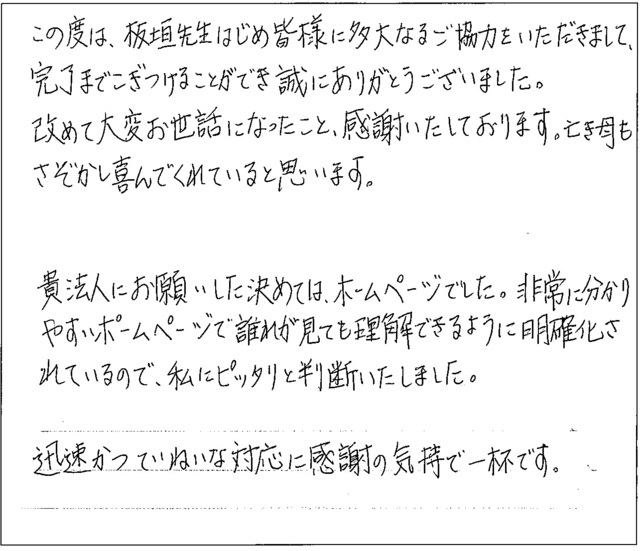 この度は、板垣先生はじめ皆様に多大なるご協力をいただきまして、
完了までこぎつけることができ誠にありがとうございました。
改めて大変お世話になったこと、感謝いたしております。亡き母も
さぞかし喜んでくれていると思います。
貴法人にお願いした決めては、ホームページでした。非常に分かり
やすいホームページで誰れが見ても理解できるように明確化さ
れているので、私にピッタリと判断いたしました。
迅速かつていねいな対応に感謝の気持で一杯です。